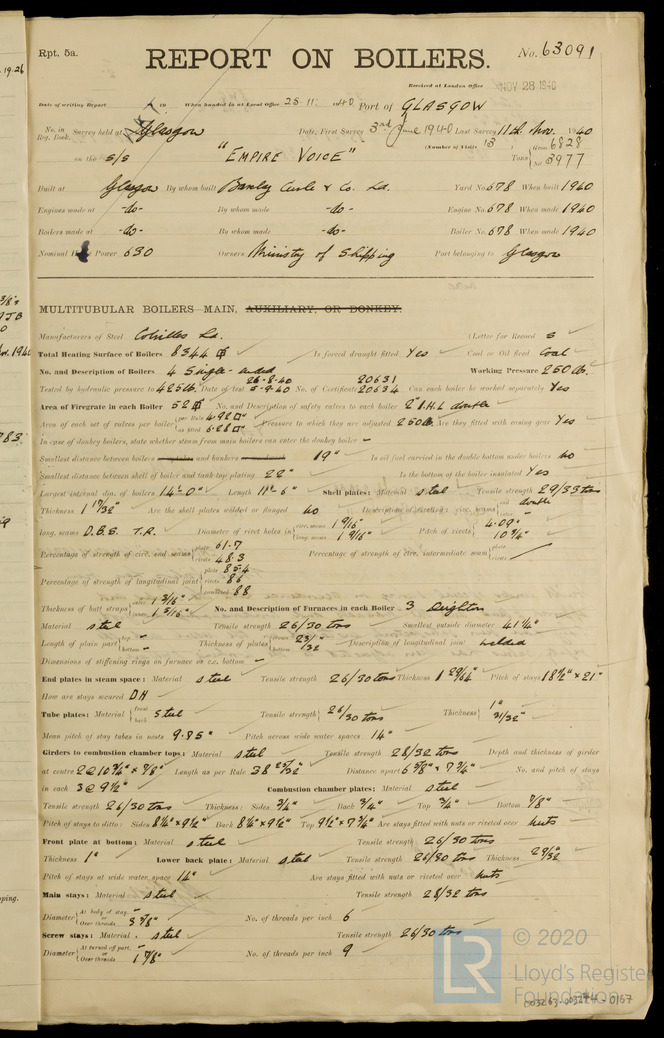 19.26
Rpt. 5a.
REPORT ON BOILERS.
No. 63091
Received at London Office NOV 28 1940
Date of writing Report 19 When handed in at Local Office 28.11. 1940 Port of GLASGOW
No. in Reg. Book. Survey held at Glasgow Date, First Survey 3rd June 1940 Last Survey 11th Nov. 1940
on the S/S "EMPIRE VOICE" (Number of Visits 13 ) Tons { Gross 6828 Net 3977
Built at Glasgow By whom built Barclay Curle & Co. Ld. Yard No. 678 When built 1940
Engines made at -do- By whom made -do- Engine No. 678 When made 1940
Boilers made at -do- By whom made -do- Boiler No. 678 When made 1940
Nominal Power 630 Owners Ministry of Shipping Port belonging to Glasgow
MULTITUBULAR BOILERS—MAIN, AUXILIARY, OR DONKEY.
Manufacturers of Steel Colvilles Ld. (Letter for Record S
Total Heating Surface of Boilers 8344 Is forced draught fitted Yes Coal or Oil fired Coal
No. and Description of Boilers 4 Single-ended Working Pressure 250 lb.
Tested by hydraulic pressure to 425 lb. Date of test 26-8-40 5-9-40 No. of Certificate 20631 20634 Can each boiler be worked separately Yes
Area of Firegrate in each Boiler 52 No. and Description of safety valves to each boiler 2" I.H.L double
Area of each set of valves per boiler { per Rule 4.92 as fitted 6.28 Pressure to which they are adjusted 250 lb. Are they fitted with easing gear Yes
In case of donkey boilers, state whether steam from main boilers can enter the donkey boiler -
Smallest distance between boilers and bunkers 19" Is oil fuel carried in the double bottom under boilers No
Smallest distance between shell of boiler and tank top plating 22" Is the bottom of the boiler insulated Yes
Largest internal dia. of boilers 14'-0" Length 11'-6" Shell plates: Material steel Tensile strength 29/33 tons
Thickness 1 17/32" Are the shell plates welded or flanged No Description of riveting: circ. seams { end double inter. -
long. seams D.B.S. T.R. Diameter of rivet holes in { circ. seams 1 9/16" long. seams 1 9/16" Pitch of rivets { 4.09" 10 3/4"
Percentage of strength of circ. end seams { plate 61.7 rivets 48.3 Percentage of strength of circ. intermediate seam { plate rivets
Percentage of strength of longitudinal joint { plate 85.4 rivets 86 combined 88
Thickness of butt straps { outer 1 3/16" inner 1 5/16" No. and Description of Furnaces in each Boiler 3 Deighton
Material steel Tensile strength 26/30 tons Smallest outside diameter 41 1/4"
Length of plain part { top - bottom - Thickness of plates { crown bottom 23/32" Description of longitudinal joint welded
Dimensions of stiffening rings on furnace or c.c. bottom -
End plates in steam space: Material steel Tensile strength 26/30 tons Thickness 1 29/64" Pitch of stays 18 1/2" × 21"
How are stays secured DN
Tube plates: Material { front back steel Tensile strength { 26/30 tons Thickness { 1" 31/32"
Mean pitch of stay tubes in nests 9.95" Pitch across wide water spaces 14"
Girders to combustion chamber tops: Material steel Tensile strength 28/32 tons Depth and thickness of girder
at centre 2 @ 10 3/4" × 7/8" Length as per Rule 38 25/32" Distance apart 6 5/8" × 7 3/4" No. and pitch of stays
in each 3 @ 9 1/2" Combustion chamber plates: Material steel
Tensile strength 26/30 tons Thickness: Sides 3/4" Back 3/4" Top 3/4" Bottom 7/8"
Pitch of stays to ditto: Sides 8 1/4" × 9 1/2" Back 8 1/4" × 9 1/2" Top 9 1/2" × 7 3/4" Are stays fitted with nuts or riveted over nuts
Front plate at bottom: Material steel Tensile strength 26/30 tons
Thickness 1" Lower back plate: Material steel Tensile strength 26/30 tons Thickness 29/32"
Pitch of stays at wide water space 14" Are stays fitted with nuts or riveted over nuts
Main stays: Material steel Tensile strength 28/32 tons
Diameter { At body of stay, - or Over threads 3 3/8" No. of threads per inch 6
Screw stays: Material steel Tensile strength 26/30 tons
Diameter { At turned off part, - or Over threads 1 7/8" No. of threads per inch 9
© 2020
Lloyd's Register
Foundation
003263-003274-0167